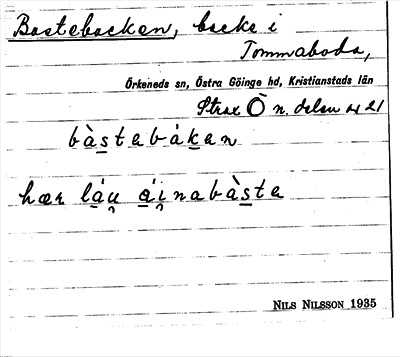 Bastebacken, backe i
Tommaboda,
Örkeneds sn, Östra Göinge hd, Kristianstads län
Strax Ö n. delen av 21
bàstebàkan
hær láu áinabàsta
Nils Nilsson 1935